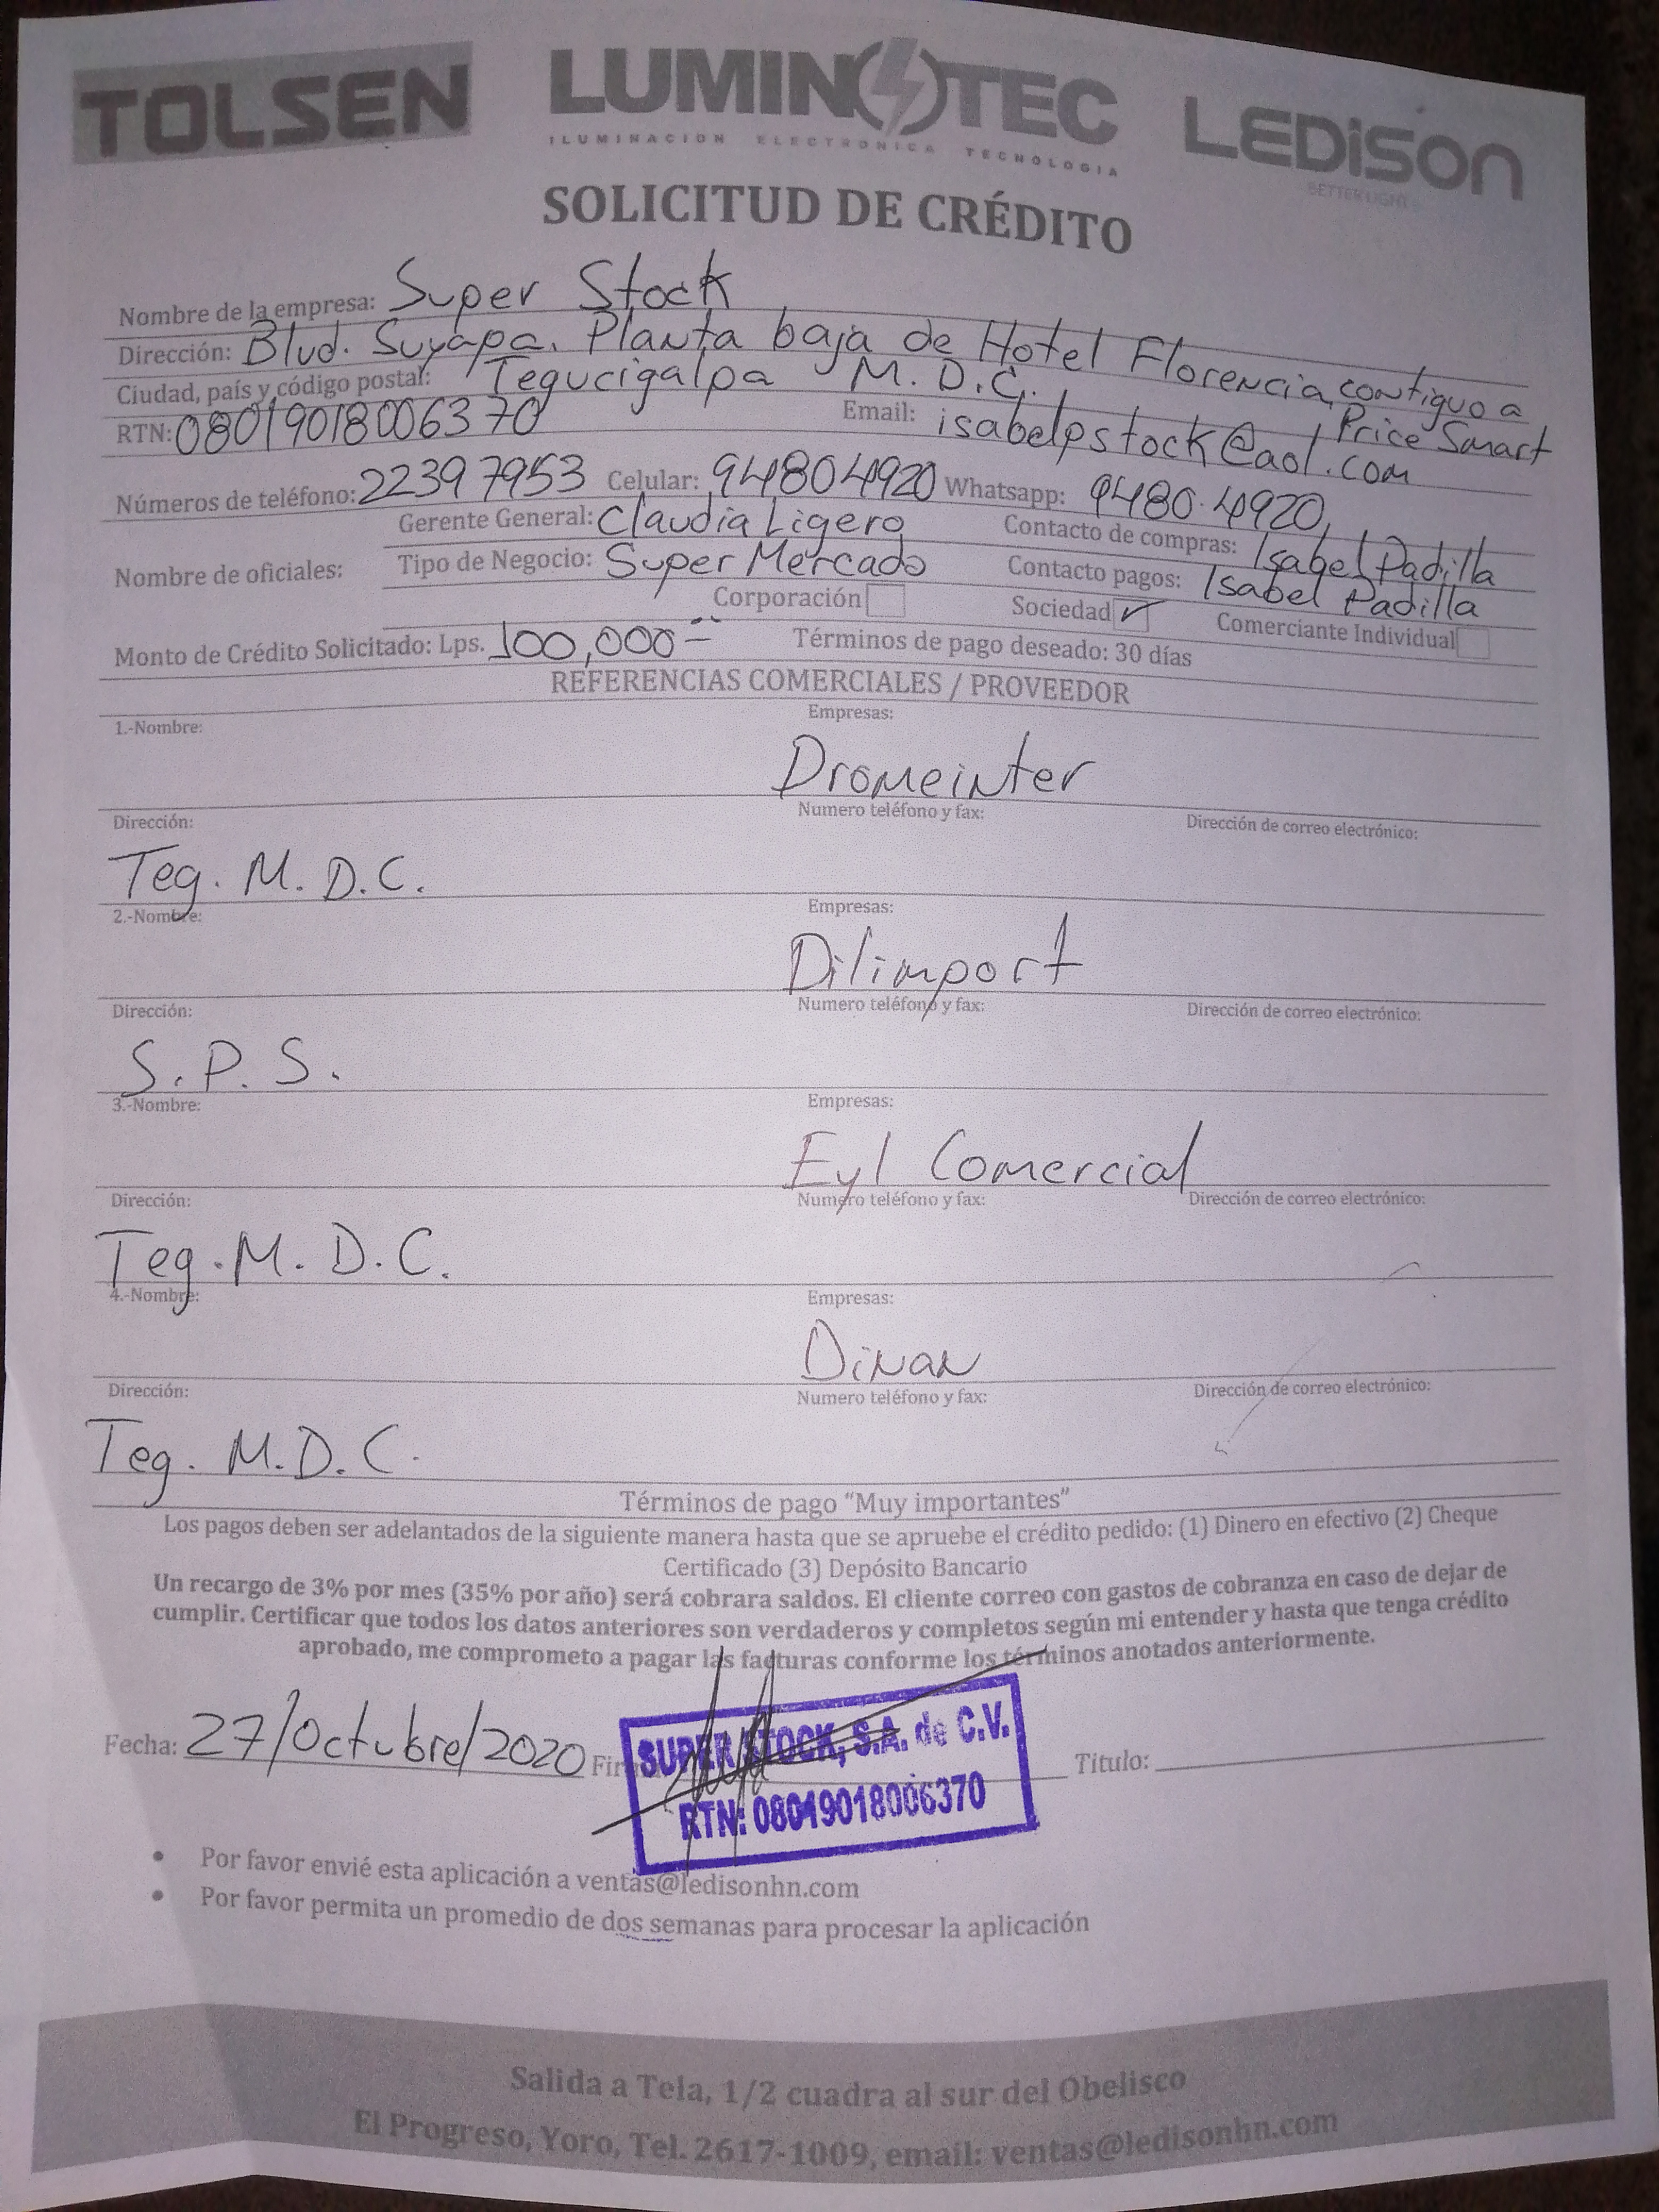 TOLSEN LUMINOTEC LEDISON
ILUMINACION ELECTRONICA TECNOLOGIA
BETTER LIGHT
SOLICITUD DE CRÉDITO
Nombre de la empresa: Super Stock
Dirección: Blvd. Suyapa. Planta baja de Hotel Florencia, contiguo a
Price Smart
Ciudad, país y código postal: Tegucigalpa M.D.C.
RTN: 08019018006370 Email: isabelpstock@aol.com
Números de teléfono: 22397953 Celular: 94804920 Whatsapp: 9480.4920
Nombre de oficiales: Gerente General: Claudia Ligero Contacto de compras: Isabel Padilla
Tipo de Negocio: Super Mercado Contacto pagos: Isabel Padilla
Corporación Sociedad ✓ Comerciante Individual
Monto de Crédito Solicitado: Lps. 100,000= Términos de pago deseado: 30 días
REFERENCIAS COMERCIALES / PROVEEDOR
1.-Nombre: Empresas:
Dromeinter
Dirección: Numero teléfono y fax: Dirección de correo electrónico:
Teg. M. D.C.
2.-Nombre: Empresas:
Dilimport
Dirección: Numero teléfono y fax: Dirección de correo electrónico:
S. P. S.
3.-Nombre: Empresas:
Eyl Comercial
Dirección: Numero teléfono y fax: Dirección de correo electrónico:
Teg. M. D. C.
4.-Nombre: Empresas:
Dinan
Dirección: Numero teléfono y fax: Dirección de correo electrónico:
Teg. M.D.C.
Términos de pago “Muy importantes”
Los pagos deben ser adelantados de la siguiente manera hasta que se apruebe el crédito pedido: (1) Dinero en efectivo (2) Cheque
Certificado (3) Depósito Bancario
Un recargo de 3% por mes (35% por año) será cobrara saldos. El cliente correo con gastos de cobranza en caso de dejar de
cumplir. Certificar que todos los datos anteriores son verdaderos y completos según mi entender y hasta que tenga crédito
aprobado, me comprometo a pagar las facturas conforme los términos anotados anteriormente.
Fecha: 27/Octubre/2020 Titulo:
SUPER STOCK, S.A. de C.V.
RTN: 08019018006370
• Por favor envié esta aplicación a ventas@ledisonhn.com
• Por favor permita un promedio de dos semanas para procesar la aplicación
Salida a Tela, 1/2 cuadra al sur del Obelisco
El Progreso, Yoro, Tel. 2617-1009, email: ventas@ledisonhn.com